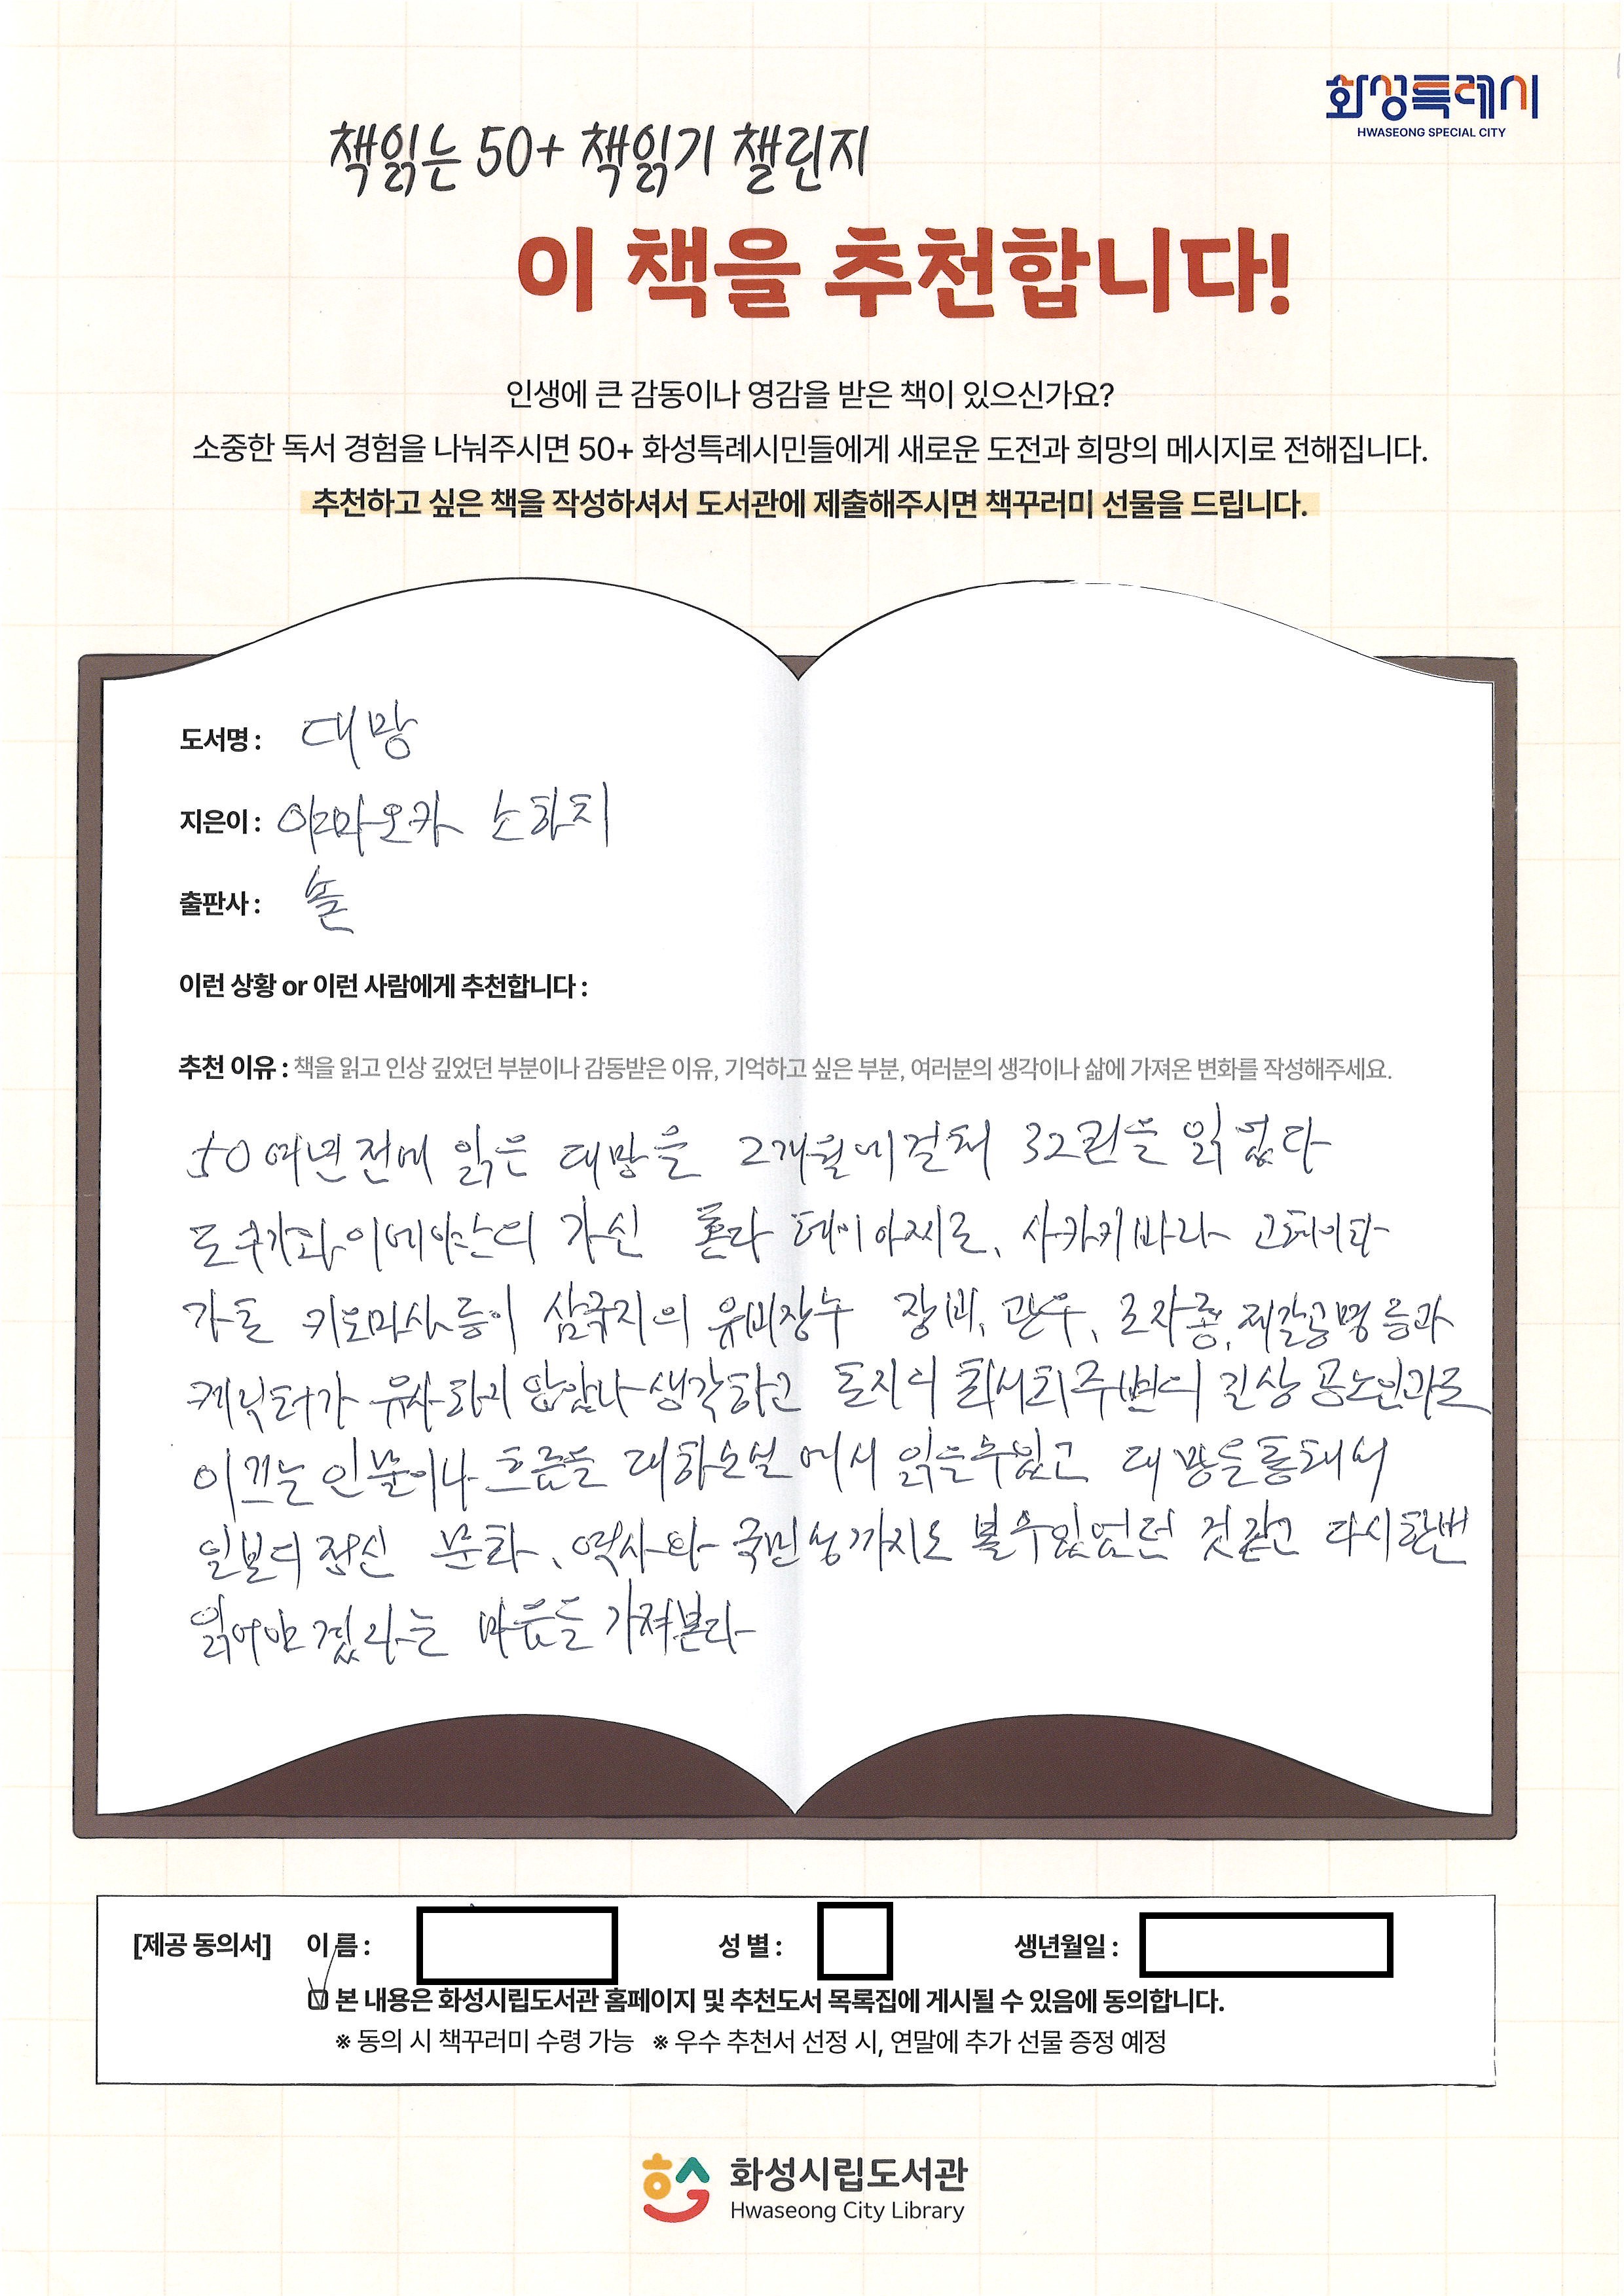 화성특례시
HWASEONG SPECIAL CITY
책읽는 50+ 책읽기 챌린지
이 책을 추천합니다!
인생에 큰 감동이나 영감을 받은 책이 있으신가요?
소중한 독서 경험을 나눠주시면 50+ 화성특례시민들에게 새로운 도전과 희망의 메시지로 전해집니다.
추천하고 싶은 책을 작성하셔서 도서관에 제출해주시면 책꾸러미 선물을 드립니다.
도서명 : 대망
지은이 : 야마오카 소하치
출판사 : 솔
이런 상황 or 이런 사람에게 추천합니다 :
추천 이유 : 책을 읽고 인상 깊었던 부분이나 감동받은 이유, 기억하고 싶은 부분, 여러분의 생각이나 삶에 가져온 변화를 작성해주세요.
50여년전에 읽은 대망을 2개월에걸쳐 32권을 읽었다
도쿠가와이에야스의 가신 혼다 테이아찌로, 사카키바라 고헤이타
가토 키요마사등이 삼국지의 유비장수 장비, 관우, 조자룡, 제갈공명 등과
케릭터가 유사하지 않았나 생각하고 조직의 회사의주변의
이끄는 인물이나 흐름을 대하소설에서 읽을수있고 대망을통해서
일본의정신 문화, 역사와 국민성까지도 볼수있었던 것같고 다시한번
읽어야겠다는 마음을 가져본다
[제공 동의서] 이 름 : 성 별 : 생년월일 :
본 내용은 화성시립도서관 홈페이지 및 추천도서 목록집에 게시될 수 있음에 동의합니다.
※ 동의 시 책꾸러미 수령 가능 ※ 우수 추천서 선정 시, 연말에 추가 선물 증정 예정
화성시립도서관
Hwaseong City Library